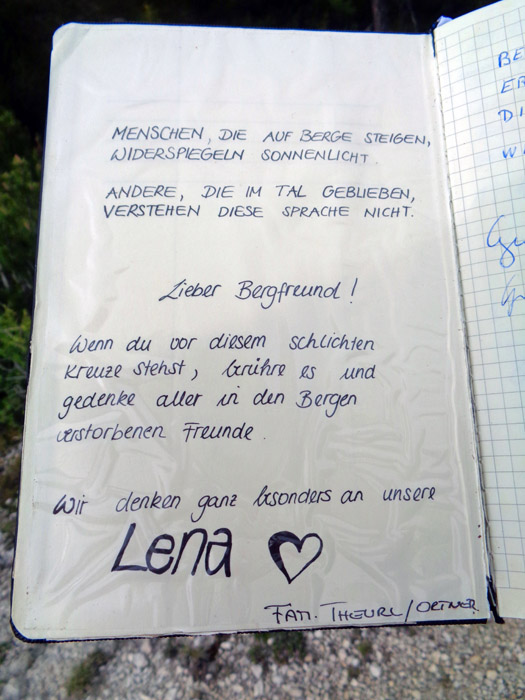 MENSCHEN, DIE AUF BERGE STEIGEN,
WIDERSPIEGELN SONNENLICHT.
ANDERE, DIE IM TAL GEBLIEBEN,
VERSTEHEN DIESE SPRACHE NICHT.
Lieber Bergfreund!
Wenn du vor diesem schlichten
Kreuze stehst, berühre es und
gedenke aller in den Bergen
verstorbenen Freunde.
Wir denken ganz besonders an unsere
Lena ♡
FAM. THEURL/ORTNER
BE
ER
DI
W